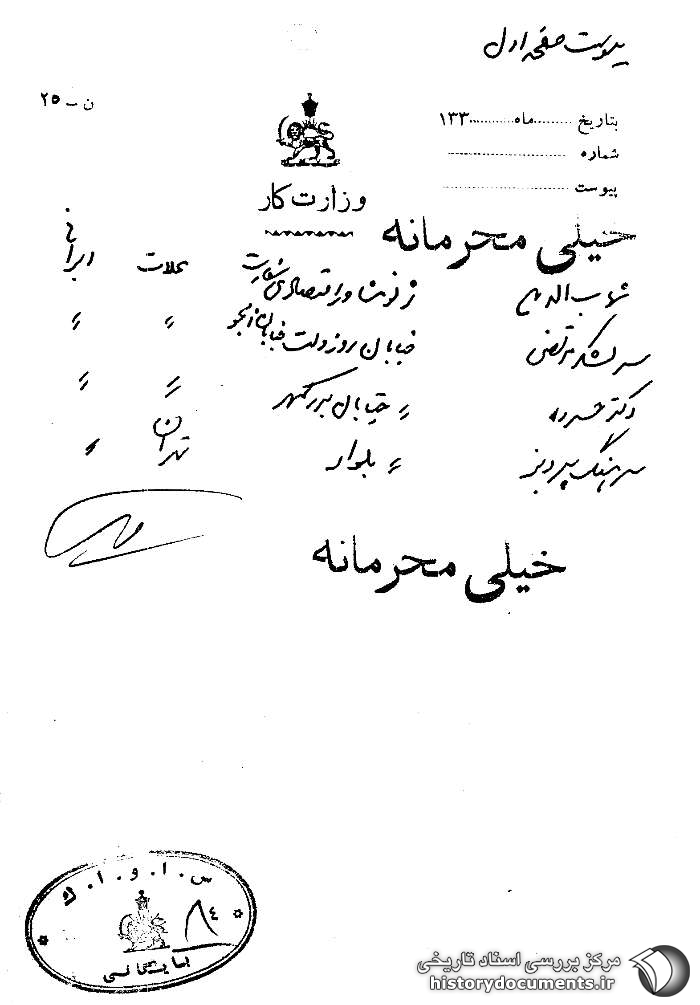 پیوست صفحه اول
ن - ۲۵
بتاریخ ......... ماه ............ ۱۳۳
شماره
پیوست
وزارت کار
خیلی محرمانه
شهاب الدین ژنو نشاور اقتصادی سفارت محلات ایرانی
سرلشکر مرتضی خیابان روزولت خیابان " "
دکتر خسرو " خیابان بزرگمهر " "
سرهنگ پرویز " بلوار تهران "
خیلی محرمانه
س . ا . و . ا . ک
۸۴
بایگانی
مرکز بررسی اسناد تاریخی
historydocuments.ir